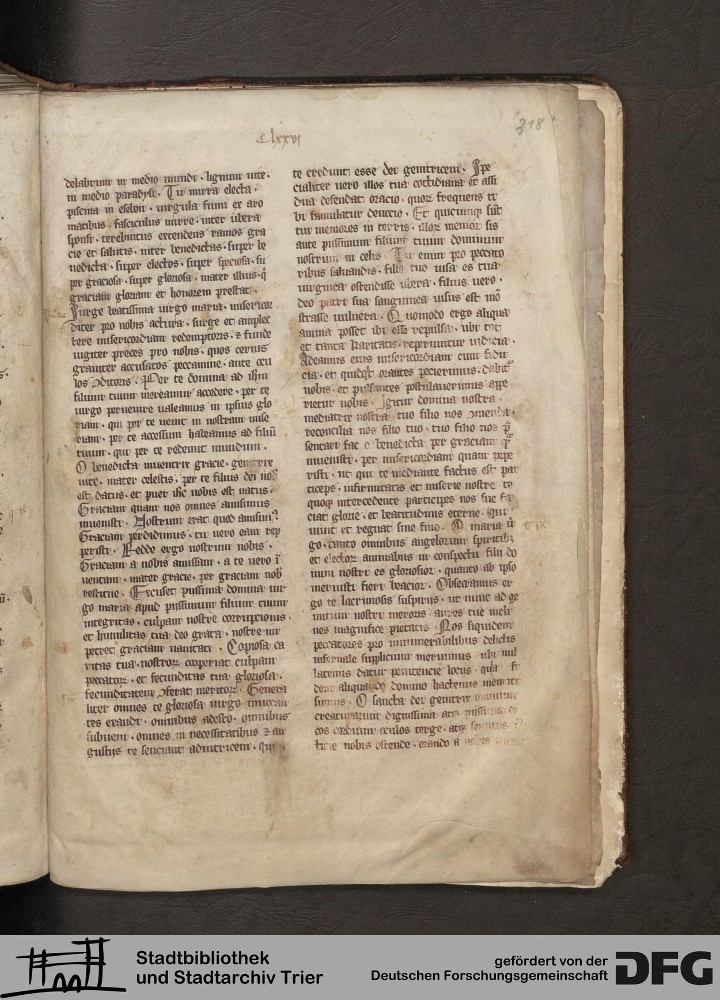 Clxxvi
218
delabrum in medio mundi · lignum uite ·
in medio paradysi · Tu mirra electa ·
piscina in esebon · uirgula fumi ex aro
matibus · fasciculus mirre · inter ubera
sponsi · terebintus extendens ramos gra
cie et salutis · inter benedictas · super be
nedicta · super electos · super speciosa · su
per graciosa · super gloriosa · mater illius · q̄
graciam gloriam et honorem prestat ·
Surge beatissima uirgo maria · misericor
diter pro nobis actura · surge et amplec
tere misericordiam redemptoris · ⁊ funde
iugiter preces pro nobis · quos cernis
grauiter accusatos peccamine · ante ocu
los ꝯditoris · Per te domina ad ihm
filium tuum mereamur accedere · per te
uirgo peruenire ualeamus in ipsius glo
riam · qui per te uenit in nostram mise
riam · per te accessum habeamus ad filiū
tuum · qui per te redemit mundum ·
O benedicta inuentrix gracie · genitrix
uite · mater celestis · per te filius dei nob
est datus · et puer ihc nobis est natus ·
Graciam quam nos omnes amisimus
inuenisti · Nostrum erat quod amisim?
Graciam perdidimus · tu uero eam rep
peristi · Redde ergo nostrum nobis ·
Graciam a nobis amissam · a te uero ī
uentam · mater gracie · per graciam nob
restitue · Excuset piissima domina uir
go maria apud piissimum filium tuum
integritas · culpam nostre corrupcionis ·
et humilitas tua deo grata · nostre im
petret graciam uanitati · Copiosa ca
ritas tua · nostrorum cooperiat culpam
peccatorum · et fecunditas tua gloriosa ·
fecunditatem ꝯferat meritorum · Genera
liter omnes te gloriosa uirgo inuocan
tes exaudi · omnibus adesto · omnibus
subueni · omnes in necessitatibus ⁊ an
gustijs te senciant adiutricem · qui
te credunt esse dei genitricem · Spe
cialiter uero illos tua cottidiana et assi
dua defendat oracio · quorum frequens ti
bi famulatur deuocio · Et quicumque sunt
tui memores in terris · illorum memor sis
ante piissimum filium tuum dominum
nostrum in celis · Tu enim pro peccato
ribus saluandis · filio tuo uisa es tua
uirginea ostendisse ubera · filius uero ·
deo patri sua sanguinea uisus est mō
strasse uulnera · Quomodo ergo aliqua
anima posset ibi esse repulsa · ubi tot
et tanta karitatis · reperiuntur indicia ·
Adeamus eius misericordiam cum fidu
cia · et quidquid orantes pecierimus · dabit
nobis · et pulsantes postulauerimus ape
rietur nobis · Igitur domina nostra ·
mediatrix nostra · tuo filio nos ꝯmenda ·
reconcilia nos filio tuo · tuo filio nos p̄
sentari fac o benedicta · per graciam q̄m
inuenisti · per misericordiam quam pepe
risti · ut qui te mediante factus est par
ticeps · infirmitatis et miserie nostre · te
quoque intercedente participes nos sue fa
ciat glorie · et beatitudinis eterne · Qui
uiuit et regnat sine fine · O maria uir
go · tanto omnibus angelorum spiritibus
et electorum animabus in conspectu filii do
mini nostri es gloriosior · quanto ab ipso
meruisti fieri beacior · Obsecramus er
go te lacrimosis suspiriis · ut nunc ad ge
mitum nostri meroris · aures tue incli
nes magnifice pietatis · Nos siquidem
peccatores pro innumerabilibus delictis
infernale supplicium meruimus · ubi nul
latenus datur penitencie locus · quia si
deni aliquando domino hactenus
simus · O sancta dei genitrix omnium
creaturarum dignissima atque piissima
cos cordium oculos terge · atque
ticie nobis ostende · orando a